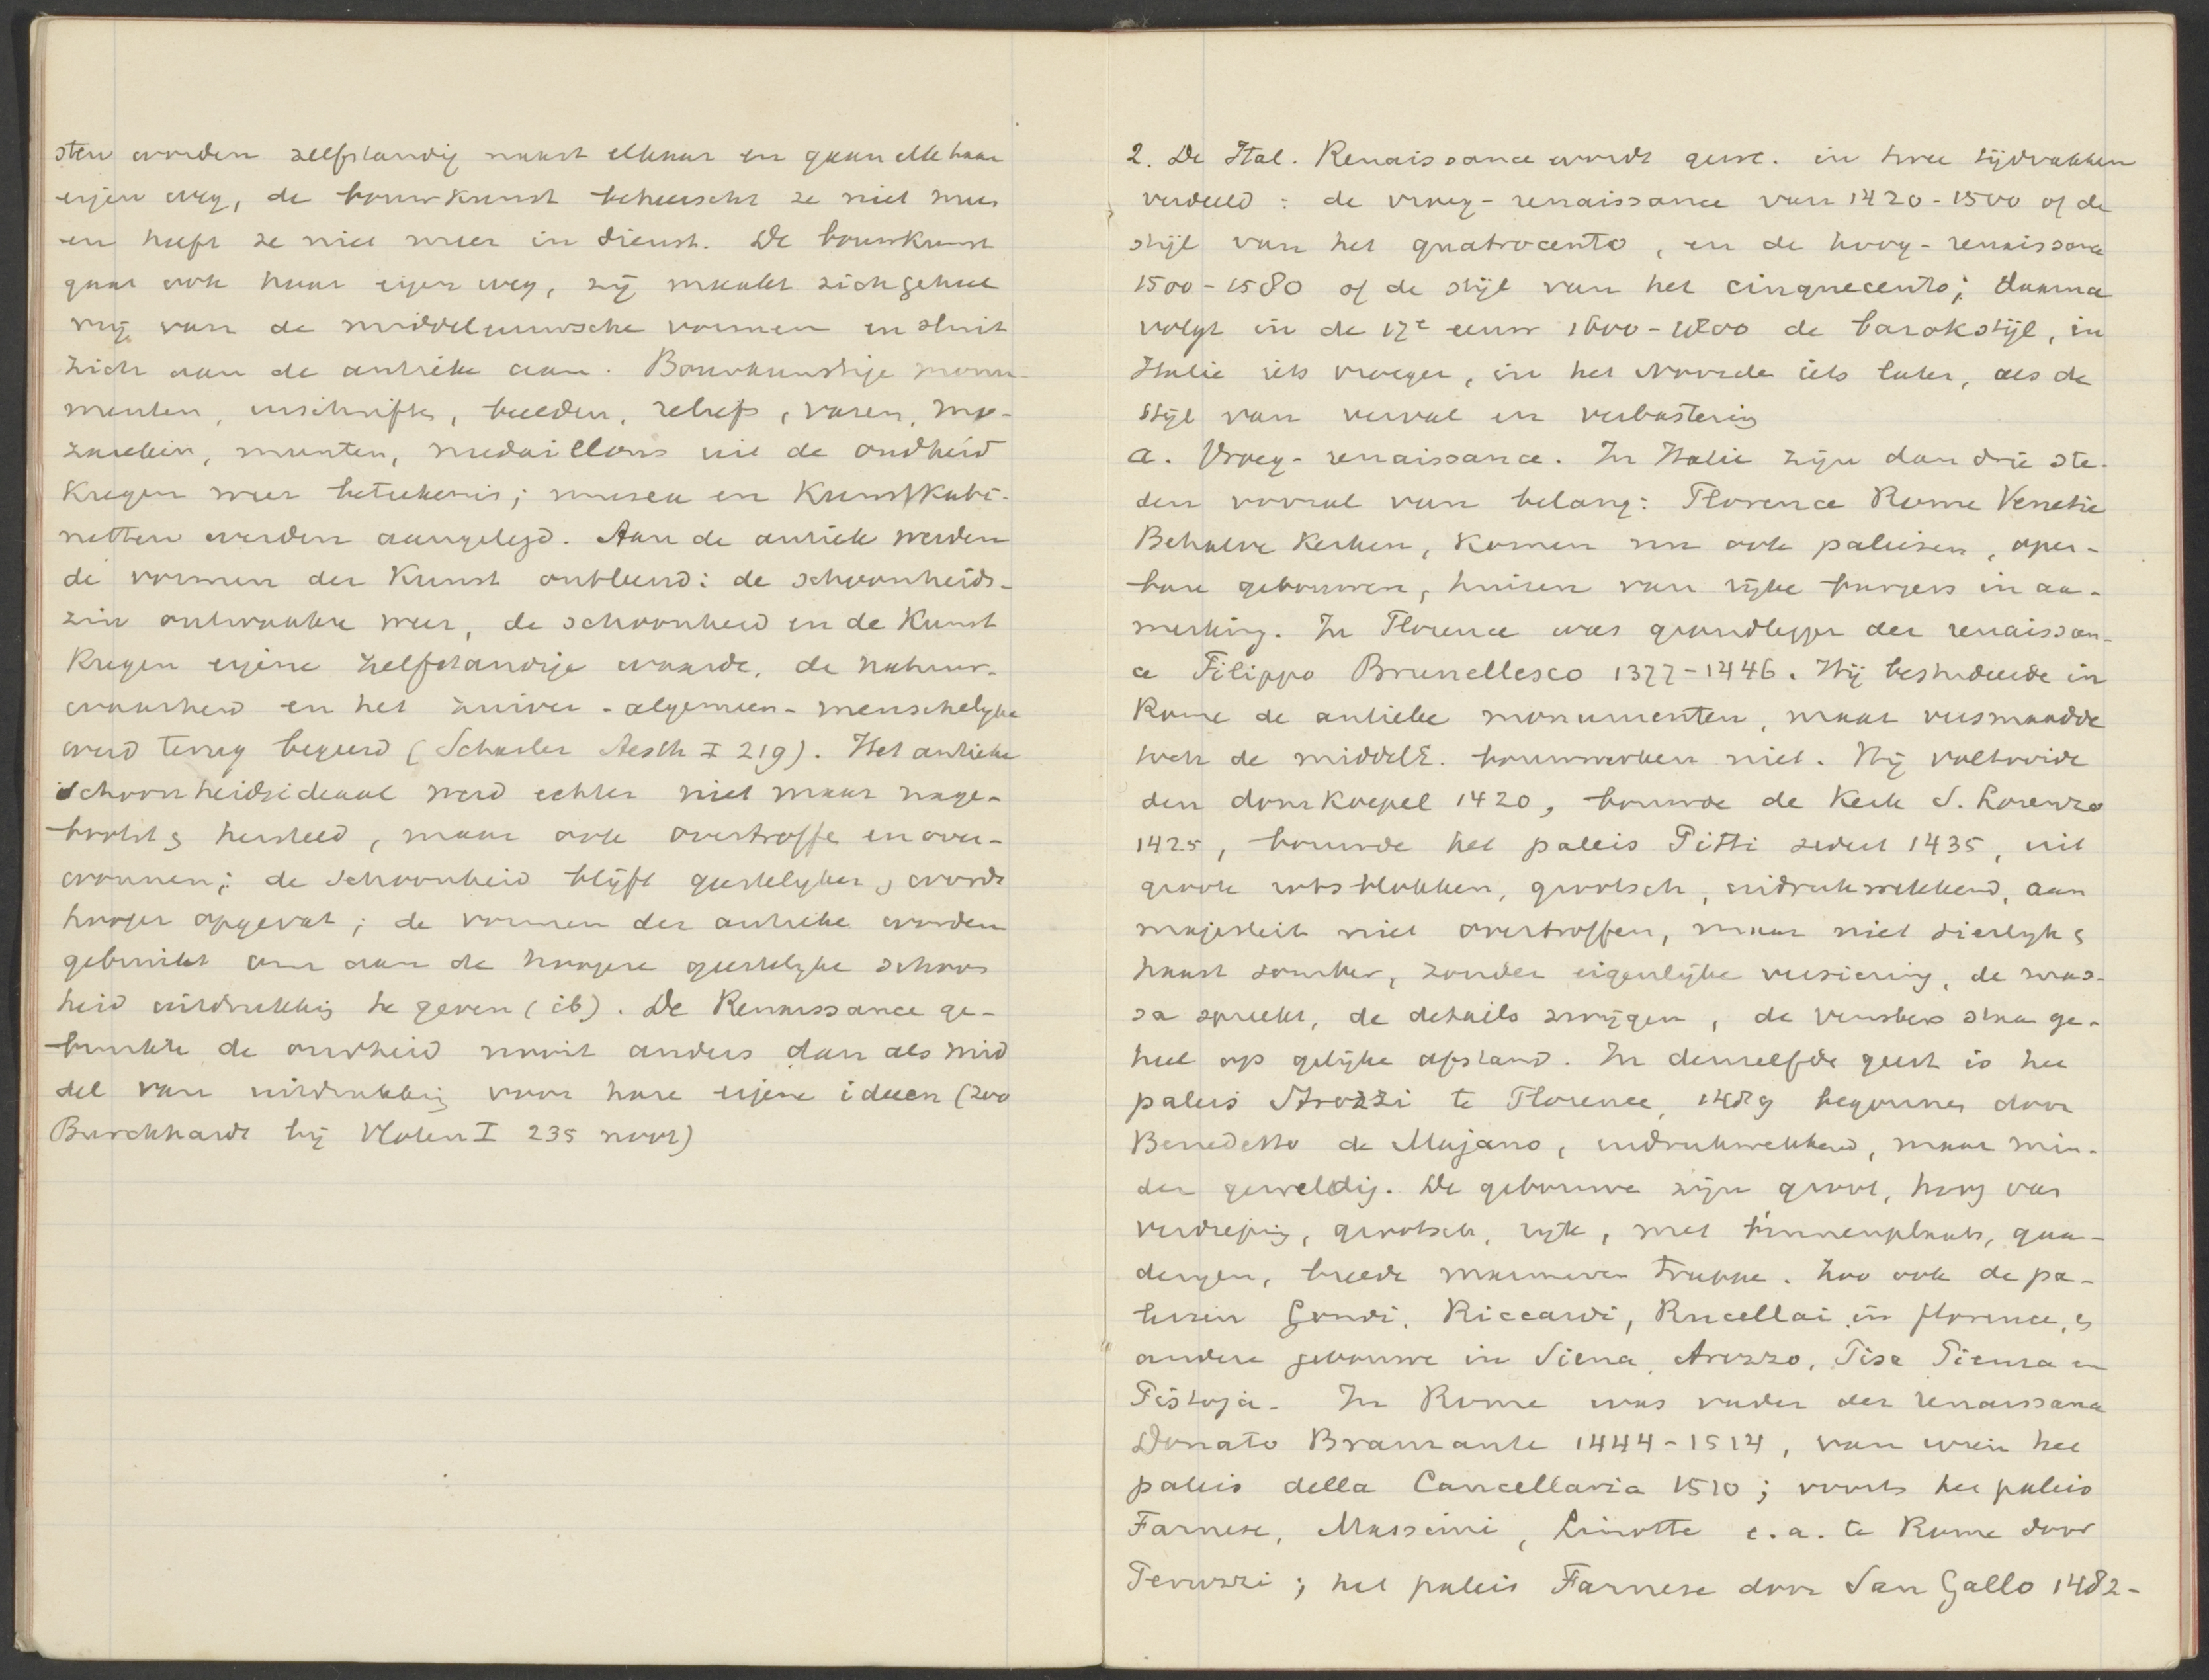 sten worden zelfstandig naast elkaar en gaan elk haar
eigen weg, de bouwkunst beheerscht ze niet meer
en heeft ze niet meer in dienst. De bouwkunst
gaat ook haar eigen weg, zij maakt zich geheel
vrij van de middeleeuwsche vormen en sluit
zich aan de antieke aan. Bouwkunstige monu-
menten, inschriften, beelden, reliefs, vazen, mo-
zaieken, munten, medaillons uit de oudheid
kregen weer beteekenis; musea en Kunstkabi-
netten werden aangelegd. Aan de antiek werden
de vormen der Kunst ontleend: de schoonheids-
zin ontwaakte weer, de schoonheid en de Kunst
kregen eigene zelfstandige waarde, de natuur-
waarheid en het zuiver-algemeen-menschelijke
werd terug begeerd (Schasler Aesth I 219). Het antieke
schoonheidsideaal werd echter niet maar nage-
bootst & hersteld, maar ook overtroffe en over-
wonnen; de schoonheid blijft geestelyker, & wordt
hooger opgevat; de vormen der antieke worden
gebruikt om aan de hoogere geestelyke schoon
heid uitdrukking te geven (ib). De Renaissance ge-
bruikte de oudheid nooit anders dan als mid
del van uitdrukking voor hare eigene ideeen (zoo
Burckhardt bij Vloten I 235 noot)
2. De Ital. Renaissance wordt gew. in twee tijdvakken
verdeeld: de vroeg-renaissance van 1420-1500 of de
stijl van het quatrocento, en de hoog-renaissance
1500-1580 of de stijl van het cinquecento; daarna
volgt in de 17e eeuw 1600-1800 de barokstijl, in
Italie iets vroeger, in het Noorde iets later, als de
stijl van verval en verbastering
a. Vroeg-renaissance. In Italie zijn dan drie ste-
den vooral van belang: Florence Rome Venetie
Behalve kerken, komen nu ook paleizen, open-
bare gebouwen, huizen van rijke burgers in aa-
merking. In Florence was grondlegger der renaissan-
ce Filippo Brunellesco 1377-1446. Hij bestudeerde in
Rome de antieke monumenten, maar versmaadde
toch de middelE. bouwwerken niet. Hij voltooide
den dom koepel 1420, bouwde de Kerk S. Lorenzo
1425, bouwde het paleis Pitti sedert 1435, uit
groote rotsblokken, grootsch, indrukwekkend, aan
majesteit niet overtroffen, maar niet sierlyk &
haast somber, zonder eigenlijke versiering, de mas-
sa spreekt, de details zwijgen, de vensters staan ge-
heel op gelijke afstand. In denzelfde geest is het
paleis Strozzi te Florence, 1489 begonnen door
Benedetto de Majano, indrukwekkend, maar min-
der geweldig. De gebouwe zijn groot, hoog van
verdieping, grootsch, rijk, met binnenplaats, gaa-
derijen, breede marmeren trappe. Zoo ook de pa-
leizen Gondi, Riccardi, Rucellai in florence, &
andere gebouwe in Siena, Arezzo, Pisa Pienza en
Pistoja. In Rome was vader der renaissance
Donato Bramante 1444-1514, van wien het
paleis della Cancellaria 1510; voorts het paleis
Farnese, Massimi, Linotte e.a. te Rome door
Peruzzi; het paleis Farnese door San Gallo 1482-